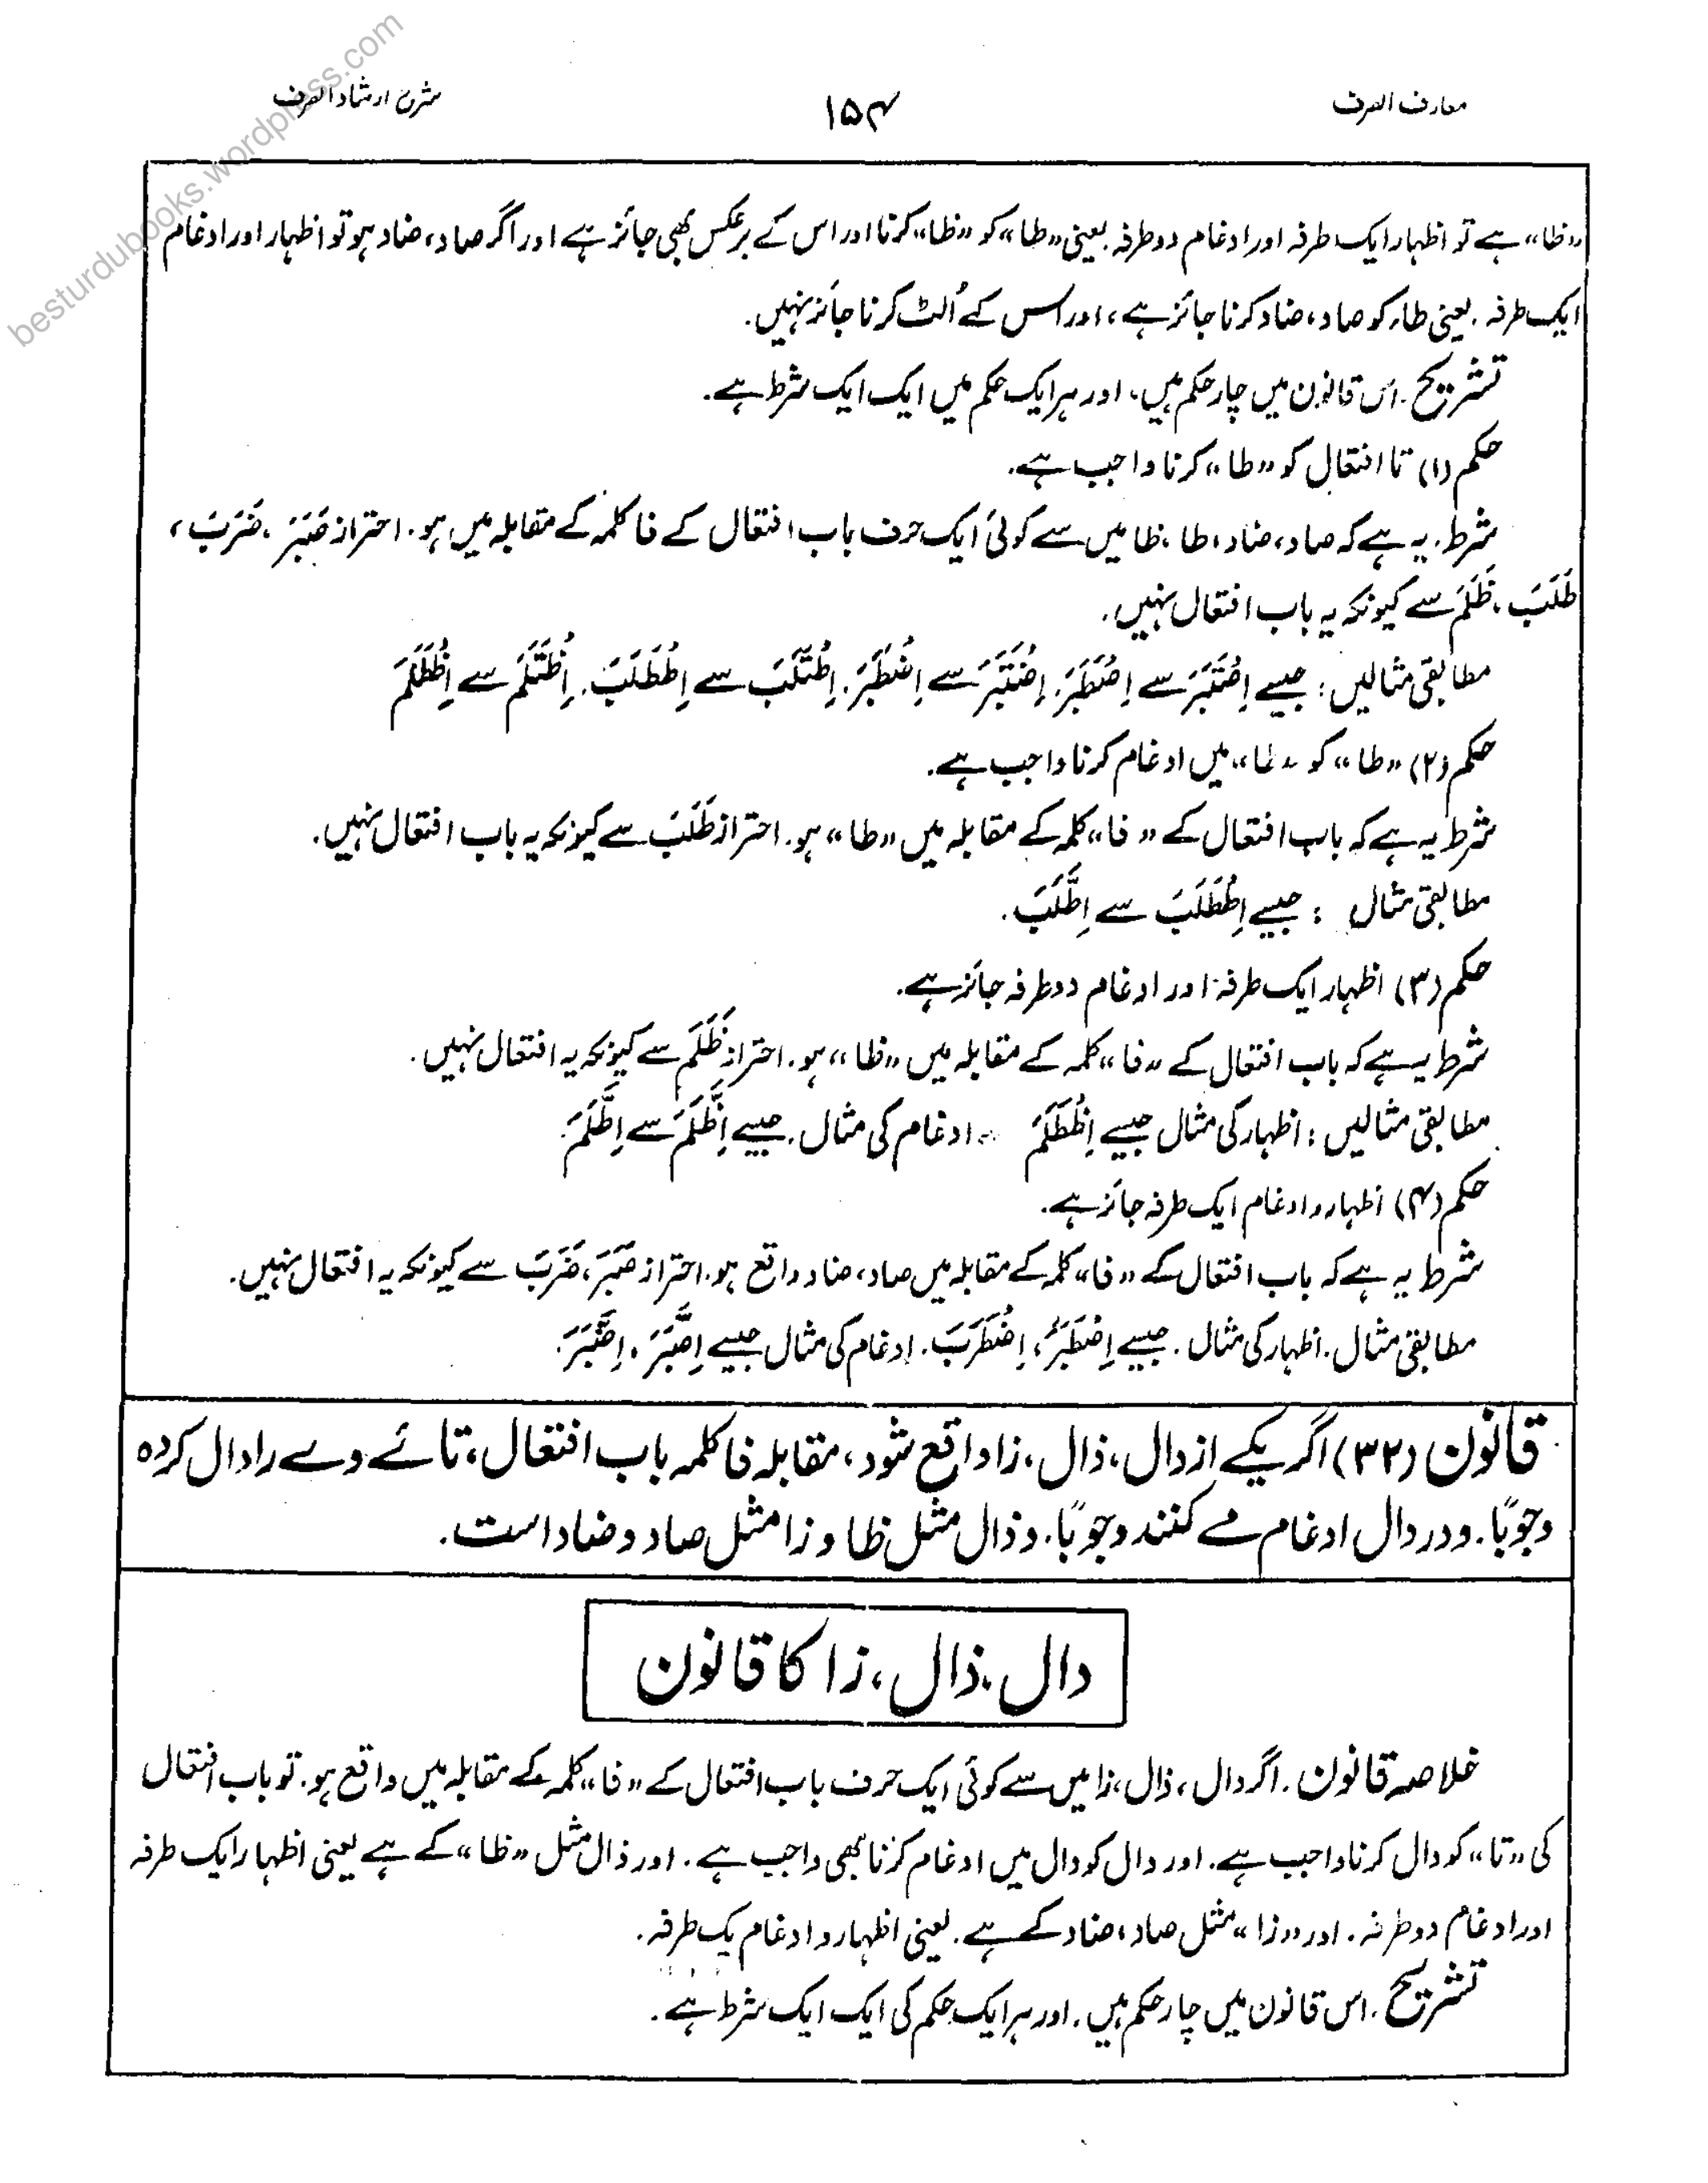 معارف الصرف
۱۵۴
شرح ارشاد الصرف
besturdubooks.wordpress.com
”ظا“ ہے تو اظہار ایک طرفہ اور ادغام دو طرفہ یعنی ”طا“ کو ”ظا“ کرنا اور اس کے برعکس بھی جائز ہے اور اگر صاد، ضاد ہو تو اظہار اور ادغام
ایک طرفہ۔ یعنی طاء کو صاد، ضاد کرنا جائز ہے، اور اس کے اُلٹ کرنا جائز نہیں۔
تشریح۔ اس قانون میں چار حکم ہیں، اور ہر ایک حکم میں ایک ایک شرط ہے۔
حکم (۱) تا افتعال کو ”طا“ کرنا واجب ہے۔
شرط۔ یہ ہے کہ صاد، ضاد، طا، ظا میں سے کوئی ایک حرف باب افتعال کے فا کلمہ کے مقابلہ میں ہو۔ احتراز صَبَرَ، ضَرَبَ،
طَلَبَ، ظَلَمَ سے کیونکہ یہ باب افتعال نہیں۔
مطابقی مثالیں: جیسے اِصْتَبَرَ سے اِصْطَبَرَ۔ اِضْتَبَرَ سے اِضْطَبَرَ۔ اِطْتَلَبَ سے اِطْطَلَبَ۔ اِظْتَلَمَ سے اِظْطَلَمَ
حکم (۲) ”طا“ کو ”طا“ میں ادغام کرنا واجب ہے۔
شرط یہ ہے کہ باب افتعال کے ”فا“ کلمہ کے مقابلہ میں ”طا“ ہو۔ احتراز طَلَبَ سے کیونکہ یہ باب افتعال نہیں۔
مطابقی مثال : جیسے اِطْطَلَبَ سے اِطَّلَبَ۔
حکم (۳) اظہار ایک طرفہ اور ادغام دو طرفہ جائز ہے۔
شرط یہ ہے کہ باب افتعال کے ”فا“ کلمہ کے مقابلہ میں ”ظا“ ہو۔ احتراز ظَلَمَ سے کیونکہ یہ افتعال نہیں۔
مطابقی مثالیں: اظہار کی مثال جیسے اِظْطَلَمَ ادغام کی مثال۔ جیسے اِظَّلَمَ سے اِطَّلَمَ۔
حکم (۴) اظہار و ادغام ایک طرفہ جائز ہے۔
شرط یہ ہے کہ باب افتعال کے ”فا“ کلمہ کے مقابلہ میں صاد، ضاد واقع ہو۔ احتراز صَبَرَ، ضَرَبَ سے کیونکہ یہ افتعال نہیں۔
مطابقی مثال۔ اظہار کی مثال۔ جیسے اِصْطَبَرَ، اِضْطَرَبَ۔ ادغام کی مثال جیسے اِصَّبَرَ، اِضَّبَرَ۔
قانون (۳۲) اگر یکے از دال، ذال، زا واقع شود، مقابلہ فا کلمہ باب افتعال، تائے وے را دال کردہ
وجوبًا۔ و در دال ادغام مے کنند وجوبًا۔ و ذال مثل ظا و زا مثل صاد و ضاد است۔
دال، ذال، زا کا قانون
خلاصہ قانون۔ اگر دال، ذال، زا میں سے کوئی ایک حرف باب افتعال کے ”فا“ کلمہ کے مقابلہ میں واقع ہو۔ تو باب افتعال
کی ”تا“ کو دال کرنا واجب ہے۔ اور دال کو دال میں ادغام کرنا بھی واجب ہے۔ اور ذال مثل ”ظا“ کے ہے یعنی اظہار ایک طرفہ
اور ادغام دو طرفہ۔ اور ”زا“ مثل صاد، ضاد کے ہے۔ یعنی اظہار و ادغام یک طرفہ۔
تشریح۔ اس قانون میں چار حکم ہیں۔ اور ہر ایک حکم کی ایک ایک شرط ہے۔